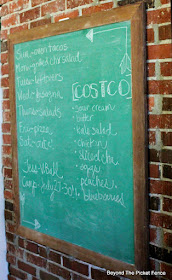 Sun-oven tacos
Mon-grilled chx salad
Tues-leftovers
Wed-lasagna
Thurs-salads
Fri-pizza
Sat-out
[COSTCO]
sour cream
butter
kale salad
chicken
sliced chz
eggs
peaches
blueberries
Jess + Bell
Camp-July 27-30th
Beyond The Picket Fence